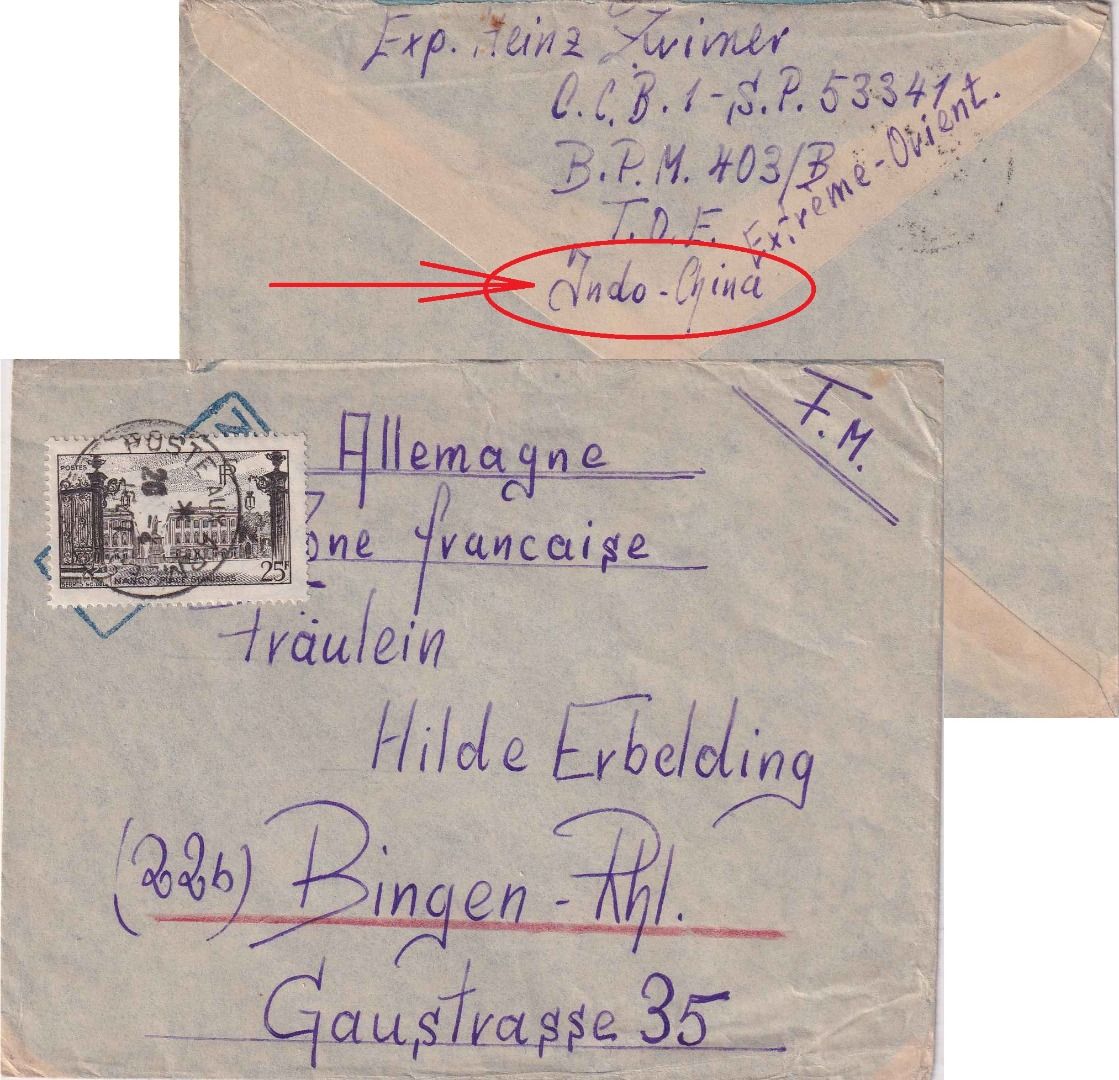 Exp. Heinz Krimer
C.C.B. 1 - S.P. 53341
B.P.M. 403/B
T.O.E.
Extrême-Orient.
Indo-China
F.M.
Allemagne
Zone francaise
Fräulein
Hilde Erbelding
(22b) Bingen - Rhl.
Gaustrasse 35
POSTE AUX
POSTES
RF
NANCY-PLACE STANISLAS
25F